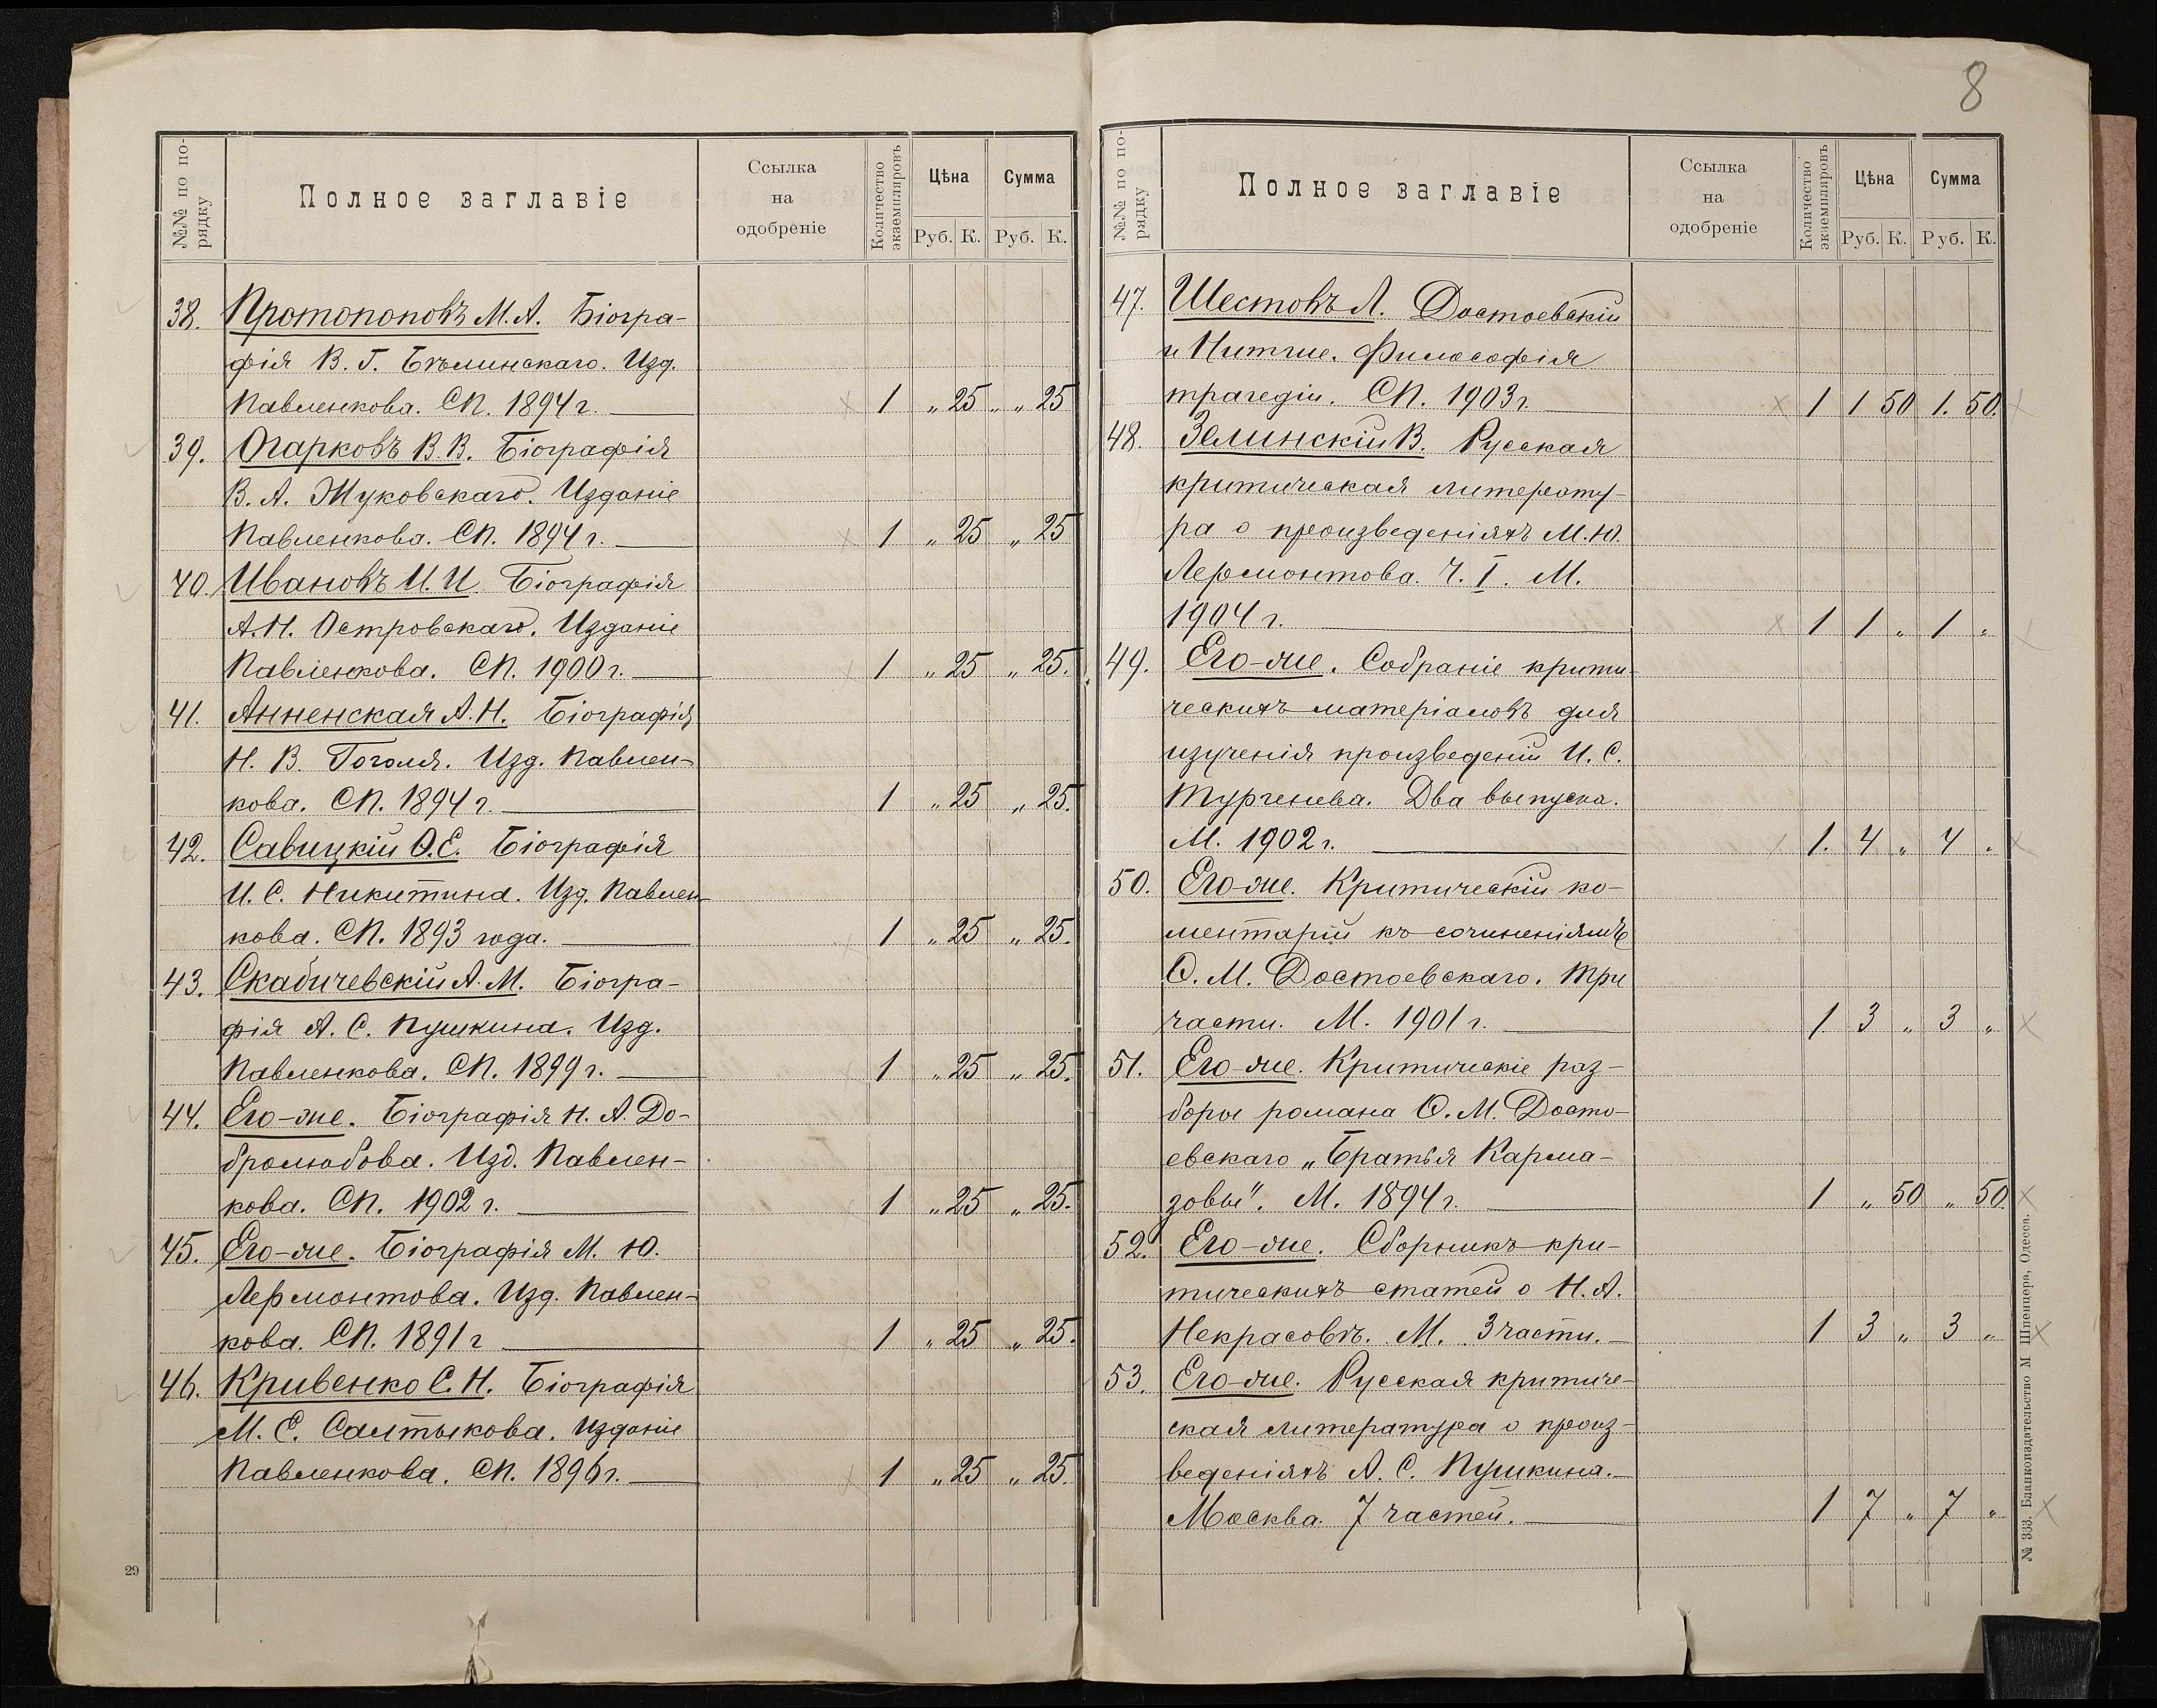 8
№№ по по-
рядку
Полное заглавіе
Ссылка
на
одобреніе
Количество
экземпляровъ
Цѣна
Сумма
Руб. К. Руб. К.
38. Протопоповъ М.А. Біогра-
фія В. Г. Бѣлинскаго. Изд.
Павленкова. СП. 1894 г. — 1 „ 25 „ „ 25
39. Огарковъ В.В. Біографія
В. А. Жуковскаго. Изданіе
Павленкова. СП. 1894 г. — 1 „ 25 „ 25
40. Ивановъ И.И. Біографія
А.Н. Островскаго. Изданіе
Павленкова. СП. 1900 г. — 1 „ 25 „ 25.
41. Анненская А.Н. Біографія
Н. В. Гоголя. Изд. Павлен-
кова. СП. 1894 г. — 1 „ 25 „ 25.
42. Савицкій Ѳ.Е. Біографія
И. С. Никитина. Изд. Павлен-
кова. СП. 1893 года. — 1 „ 25 „ 25.
43. Скабичевскій А.М. Біогра-
фія А. С. Пушкина. Изд.
Павленкова. СП. 1899 г. — 1 „ 25 „ 25.
44. Его-же. Біографія Н. А. До-
бролюбова. Изд. Павлен-
кова. СП. 1902 г. — 1 „ 25 „ 25.
45. Его-же. Біографія М. Ю.
Лермонтова. Изд. Павлен-
кова. СП. 1891 г — 1 „ 25 „ 25.
46. Кривенко С.Н. Біографія
М. Е. Салтыкова. Изданіе
Павленкова. СП. 1896 г. — 1 „ 25 „ 25.
29
№№ по по-
рядку
Полное заглавіе
Ссылка
на
одобреніе
Количество
экземпляровъ
Цѣна
Сумма
Руб. К. Руб. К.
47. Шестовъ Л. Достоевскій
и Нитше. Философія
трагедіи. СП. 1903 г. — 1 1 50 1. 50.
48. Зелинскій В. Русская
критическая литерату-
ра о произведеніяхъ М.Ю.
Лермонтова. Ч. I. М.
1904 г. — 1 1 „ 1 „
49. Его-же. Собраніе крити-
ческихъ матеріаловъ для
изученія произведеній И. С.
Тургенева. Два выпуска.
М. 1902 г. — 1. 4 „ 4 „
50. Его-же. Критическій ко-
ментарій къ сочиненіямъ
Ѳ. М. Достоевскаго. Три
части. М. 1901 г. — 1. 3 „ 3 „
51. Его-же. Критическіе раз-
боры романа Ѳ. М. Досто-
евскаго „Братья Карма-
зовы". М. 1894 г. — 1 „ 50 „ 50.
52. Его-же. Сборникъ кри-
тическихъ статей о Н. А.
Некрасовѣ. М. 3 части. — 1 3 „ 3 „
53. Его-же. Русская критиче-
ская литература о произ-
веденіяхъ А. С. Пушкина. —
Москва. 7 частей. — 1 7 „ 7 „
№ 333. Бланкоиздательство М Шпенцера, Одесса.